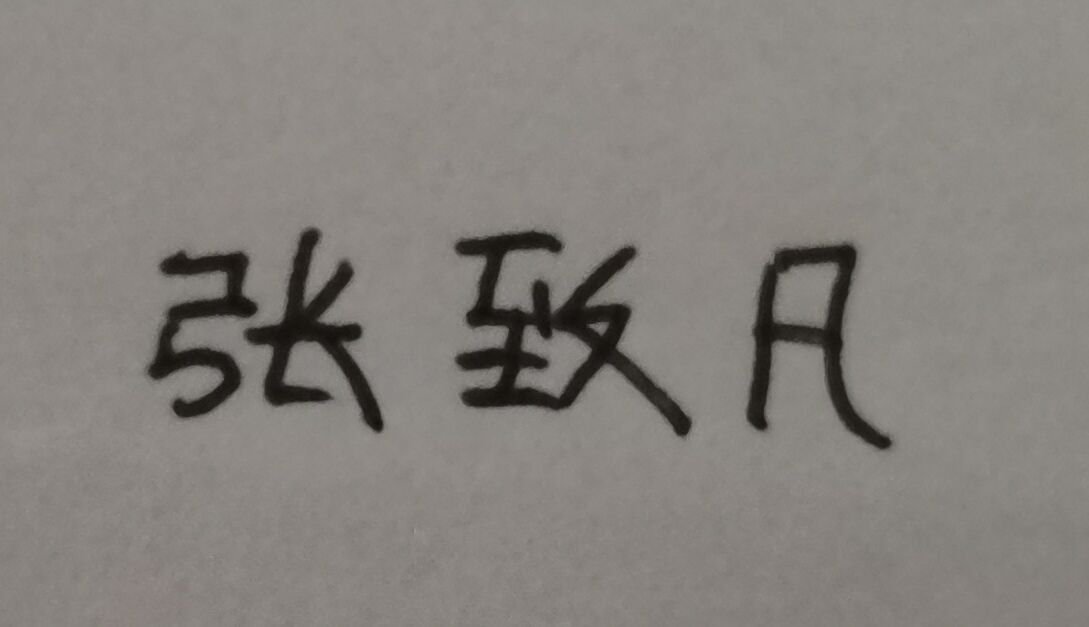 张致凡